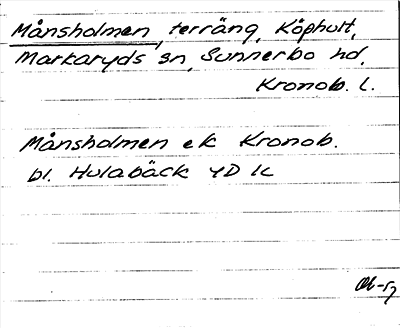 Månsholmen, terräng, Köphult,
Markaryds sn, Sunnerbo hd,
Kronob. l.
Månsholmen ek Kronob.
bl. Hulabäck 4D 1c